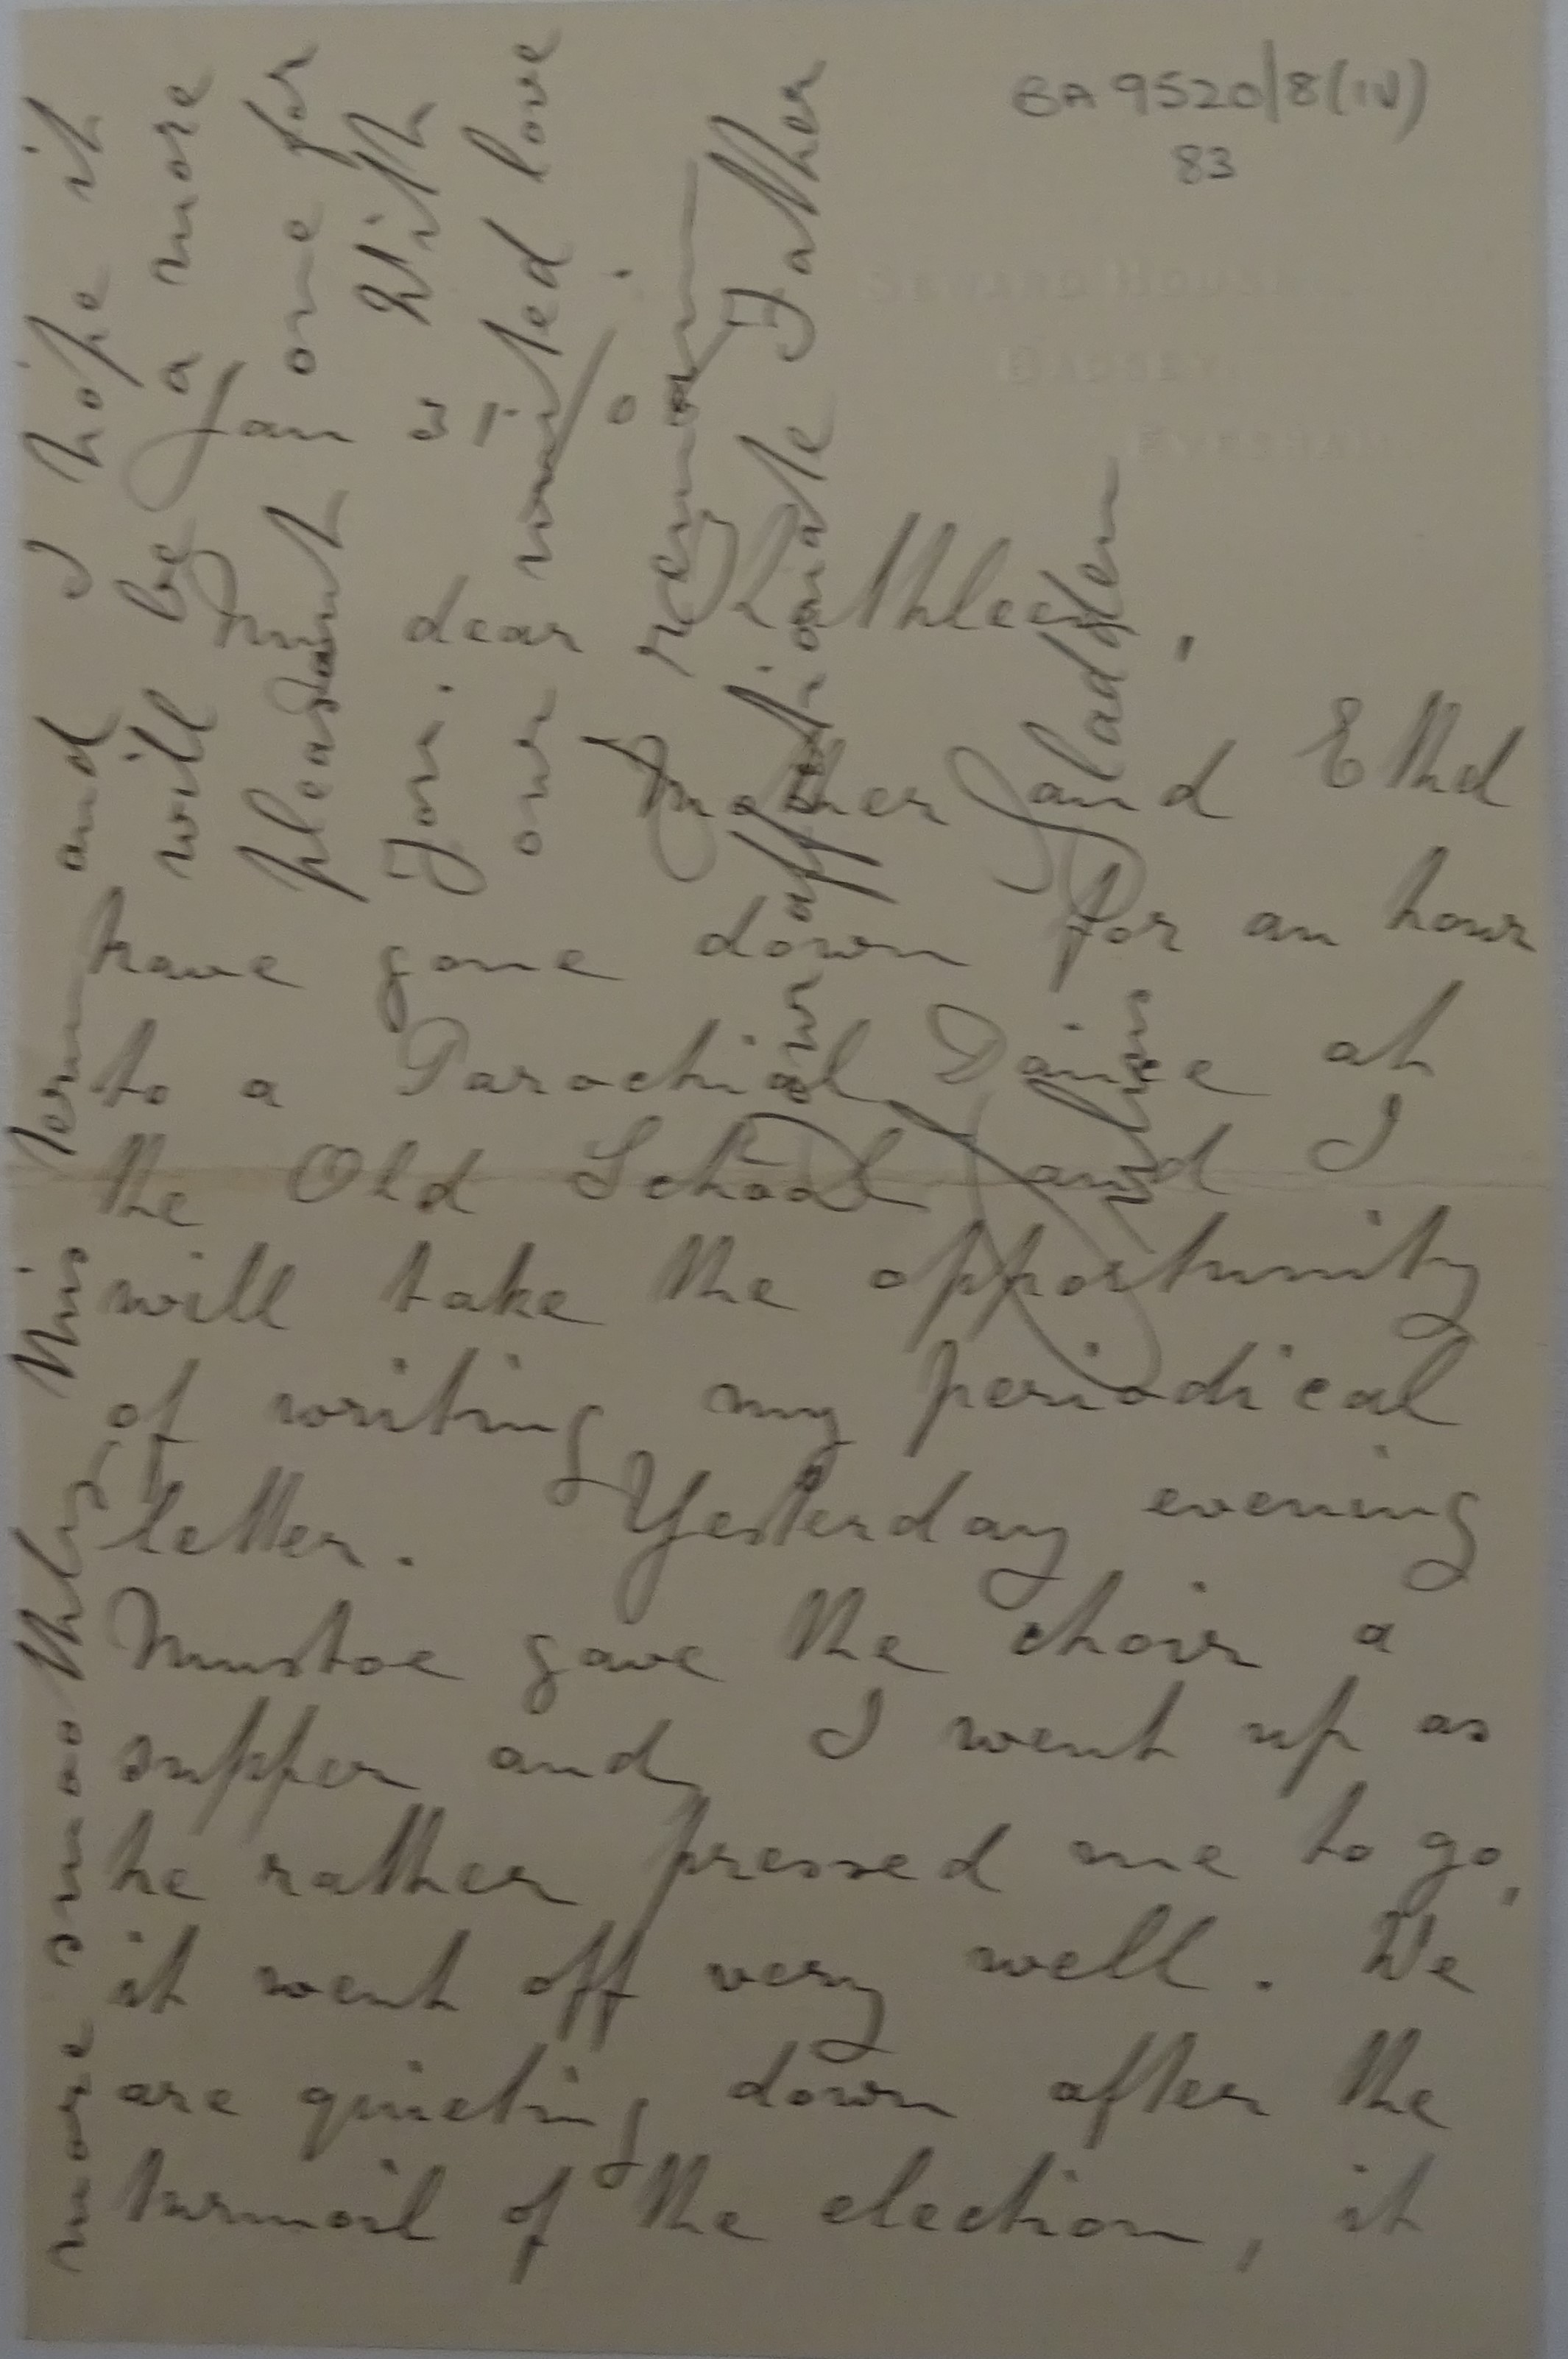 BA 9520/8(IV)
83
SEWARD HOUSE,
BADSEY,
EVESHAM.
Jan 31/10
My dear Kathleen,
Mother and Ethel
have gone down for an hour
to a Parochial Dance at
the Old School and I
will take the opportunity
of writing my periodical
letter. Yesterday evening
Mustoe gave the choir a
supper and I went up as
he rather pressed me to go,
it went off very well. We
are quieting down after the
turmoil of the election, it
more smoothly this term and I hope it
will be a more
pleasant one for
you. With
our united love
I remain
your affectionate Father
Jules Sladden